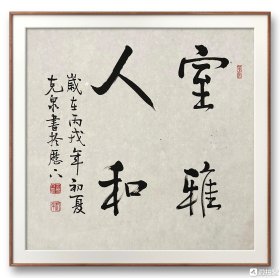 室雅
人和
歲在丙戌年初夏
克泉書於歷下